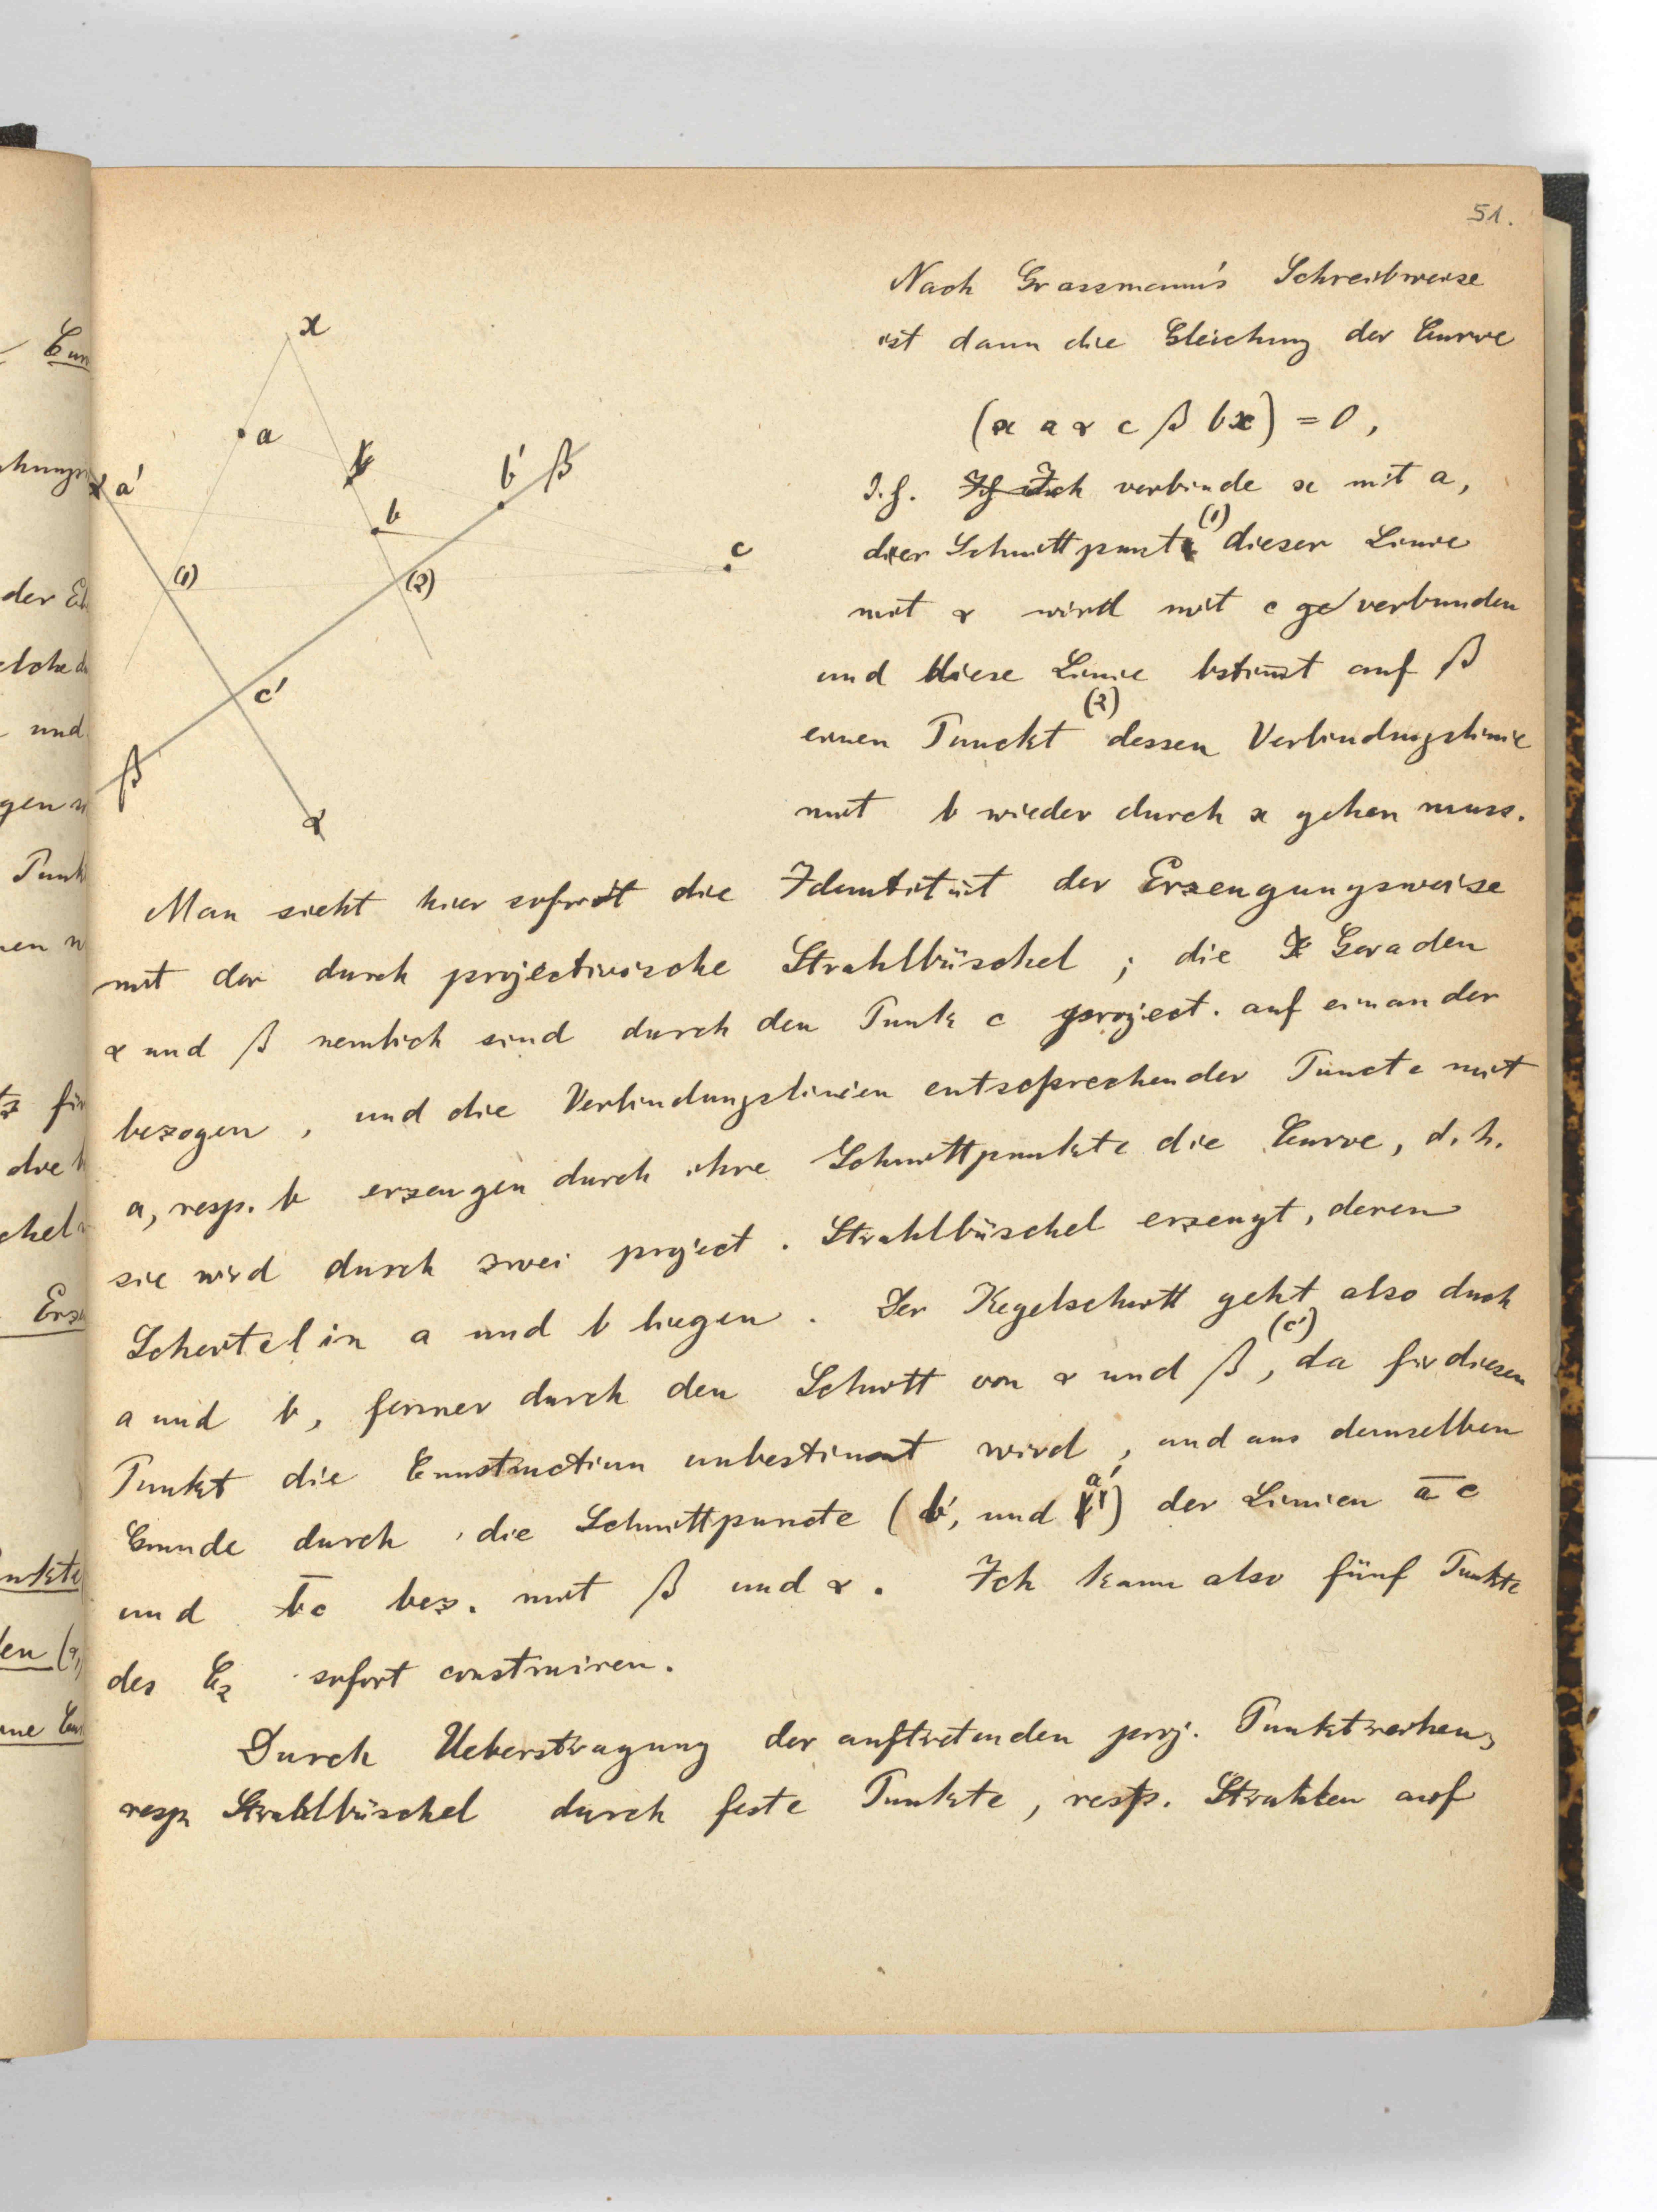 51.
Nach Grassmann's Schreibweise
ist dann die Gleichung der Curve
(x a α c β b x) = 0,
D.h. Ich verbinde x mit a,
der Schnittpunkt (1) dieser Linie
mit α wird mit c verbunden
und diese Linie bestimt auf β
einen Punckt (2) dessen Verbindungslinie
mit b wieder durch x gehen muss.
x
a
b' β
α a'
b
c
(1)
(2)
c'
β
α
Man sieht hier sofort die Identität der Erzeugungsweise
mit der durch projectivische Strahlbüschel ; die Geraden
α und β nemlich sind durch den Punk c project. auf einander
bezogen , und die Verbindungslinien entsprechender Puncte mit
a, resp. b erzeugen durch ihre Schnittpunkte die Curve, d.h.
sie wird durch zwei project. Strahlbüschel erzeugt, deren
Scheitel in a und b liegen . Der Kegelschnitt geht also durch
a und b, ferner durch den Schnitt von α und β (c'), da für diesen
Punkt die Construction unbestimt wird , und aus demselben
Grunde durch die Schnittpuncte (b', und a') der Linien ac
und bc bez. mit β und α . Ich kann also fünf Punkte
des C2 sofort construiren.
Durch Ueberstragung der auftretenden proj. Punktreihen,
resp. Strahlbüschel durch feste Punkte , resp. Strahlen auf